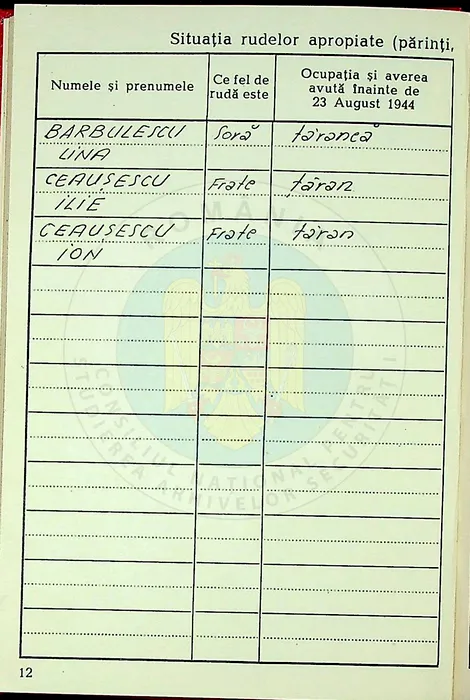 Situația rudelor apropiate (părinți,
Numele și prenumele
Ce fel de
rudă este
Ocupația și averea
avută înainte de
23 August 1944
BARBULESCU
LINA
Soră
țărancă
CEAUȘESCU
ILIE
Frate
țăran
CEAUȘESCU
ION
Frate
țăran
ROMÂNIA
CONSILIUL NAȚIONAL PENTRU
STUDIEREA ARHIVELOR SECURITĂȚII
12